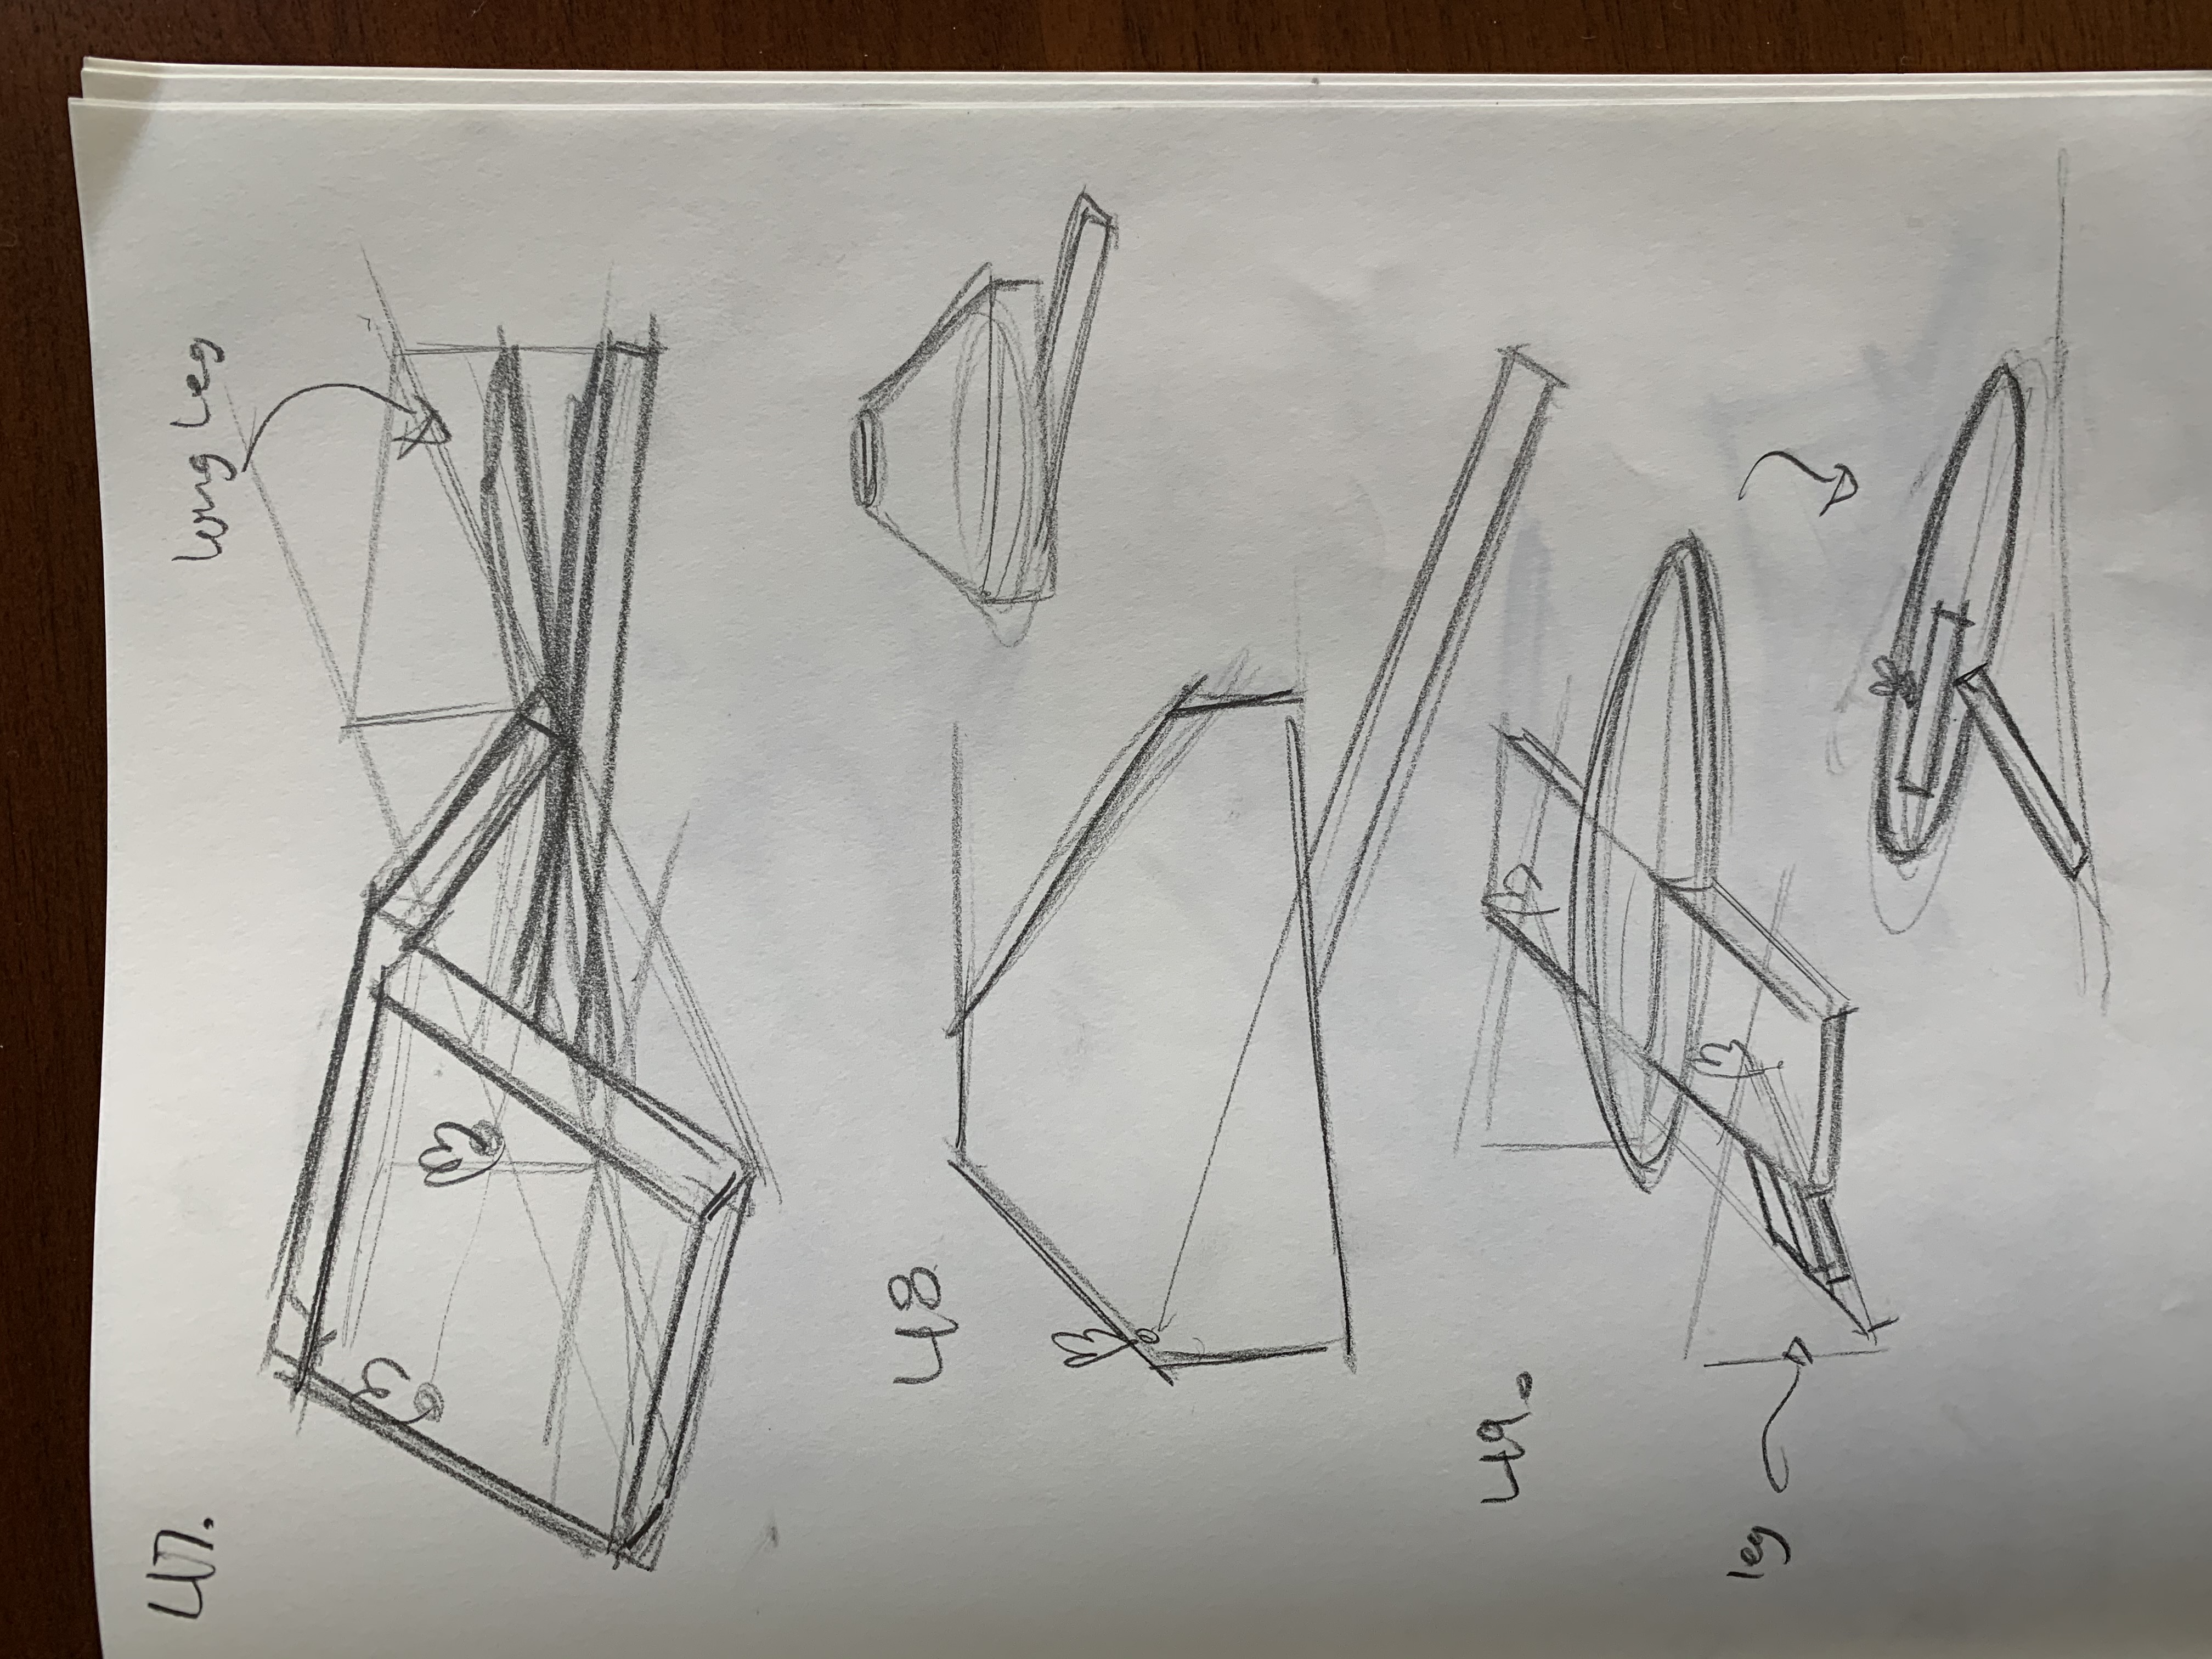 47.
long leg
48
49.
leg